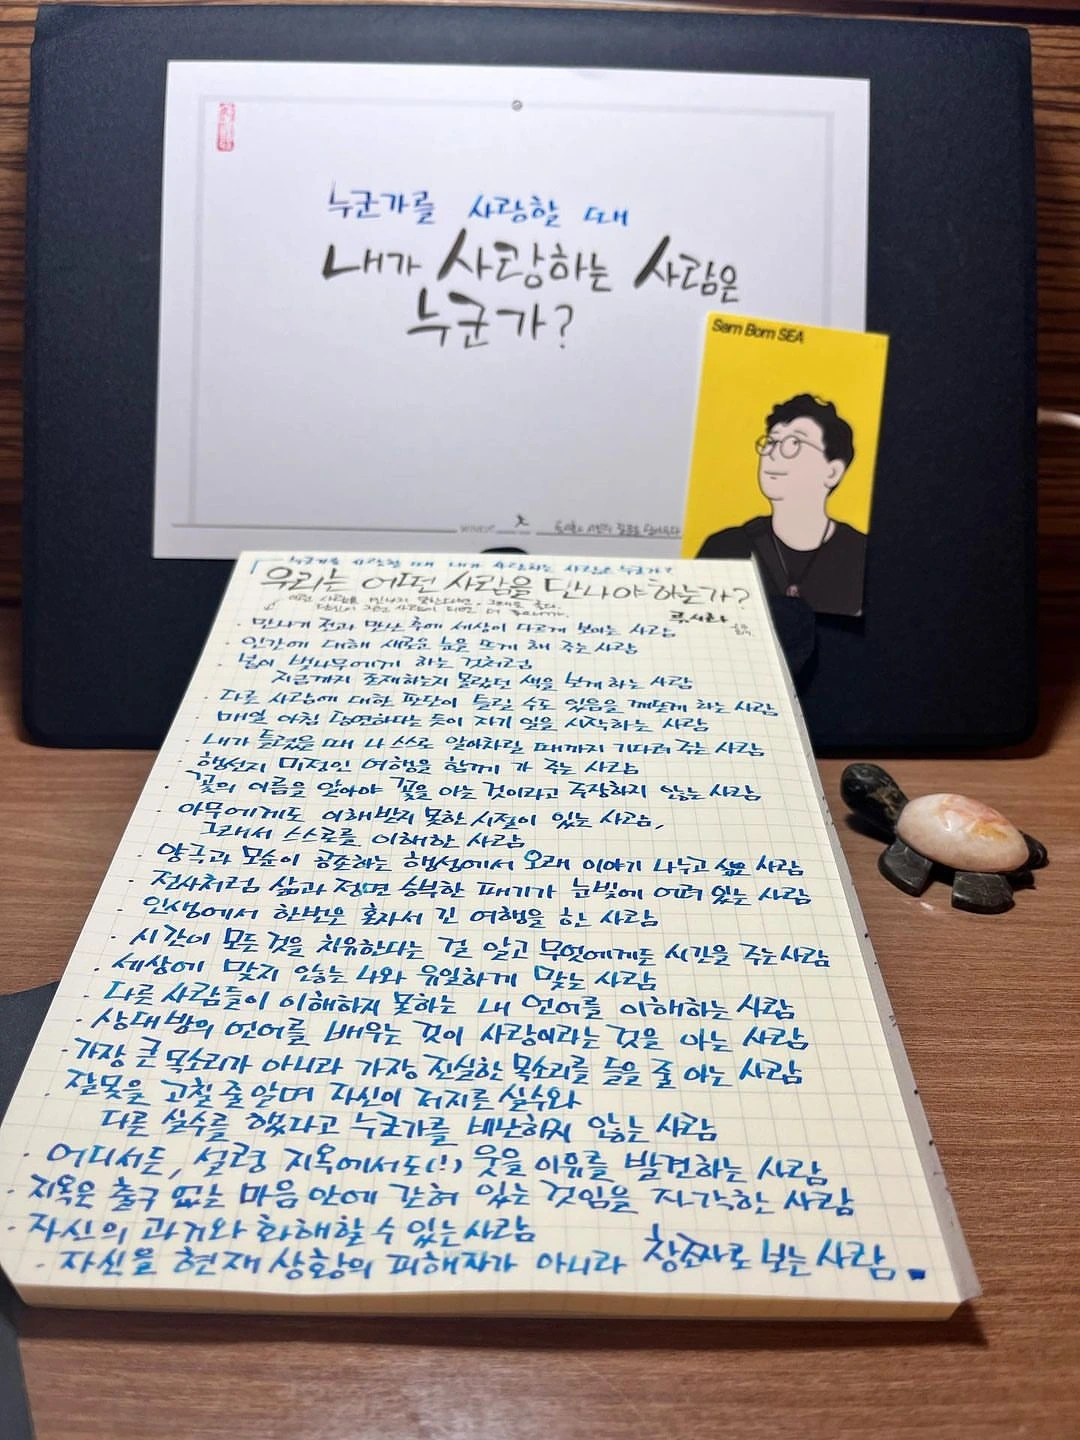 누군가를 사랑할 때
내가 사랑하는 사람은
누군가?
Sam Bom SEA
「누군가를 사랑할 때 내가 사랑하는 사람은 누군가?
우리는 어떤 사람을 만나야 하는가?
이런 사람을 만나지 못한다면, 그래도 좋다.
당신이 그런 사람이 되면 더
류시화
· 만나기 전과 만난 후에 세상이 다르게 보이는 사람
· 인간에 대해 새로운 눈을 뜨게 해 주는 사람
· 봄이 벚나무에게 하는 것처럼
지금까지 존재하는지 몰랐던 색을 보게 하는 사람
· 다른 사람에 대한 판단이 틀릴 수도 있음을 깨닫게 하는 사람
· 매일 아침 당연하다는 듯이 자기 일을 시작하는 사람
· 내가 틀렸을 때 나 스스로 알아차릴 때까지 기다려 주는 사람
· 행선지 미정인 여행을 함께 가 주는 사람
· 꽃의 이름을 알아야 꽃을 아는 것이라고 주장하지 않는 사람
· 아무에게도 이해받지 못한 시절이 있는 사람,
그래서 스스로를 이해한 사람
· 양극과 모순이 공존하는 행성에서 오래 이야기 나누고 싶은 사람
· 전사처럼 삶과 정면 승부한 패기가 눈빛에 어려 있는 사람
· 인생에서 한번은 혼자서 긴 여행을 한 사람
· 시간이 모든 것을 치유한다는 걸 알고 무엇에게든 시간을 주는 사람
· 세상에 맞지 않는 나와 유일하게 맞는 사람
· 다른 사람들이 이해하지 못하는 내 언어를 이해하는 사람
· 상대방의 언어를 배우는 것이 사랑이라는 것을 아는 사람
· 가장 큰 목소리가 아니라 가장 진실한 목소리를 들을 줄 아는 사람
· 잘못을 고칠 줄 알며 자신이 저지른 실수와
다른 실수를 했다고 누군가를 비난하지 않는 사람
· 어디서든, 설령 지옥에서도(!) 웃을 이유를 발견하는 사람
· 지옥은 출구 없는 마음 안에 갇혀 있는 것임을 자각한 사람
· 자신의 과거와 화해할 수 있는 사람
· 자신을 현재 상황의 피해자가 아니라 창조자로 보는 사람.